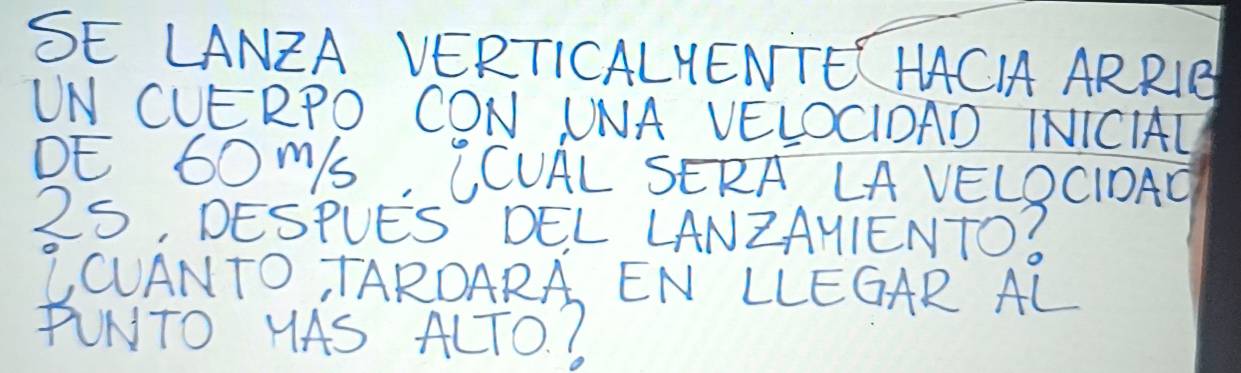 SE LANZA VERTICALMENTE HACIA ARRIB
UN CUERPO CON UNA VELOCIDAD INICIAL
DE 60 m/s. ¿CUÁL SERÁ LA VELOCIDAD
2S, DESPUÉS DEL LANZAMIENTO?
¿CUÁNTO TARDARÁ EN LLEGAR AL
PUNTO MÁS ALTO?